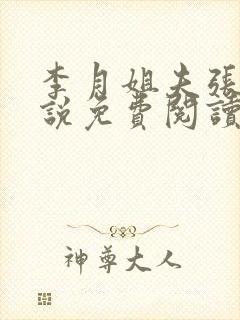 李月姐夫張
說免費閱讀
神尊大人